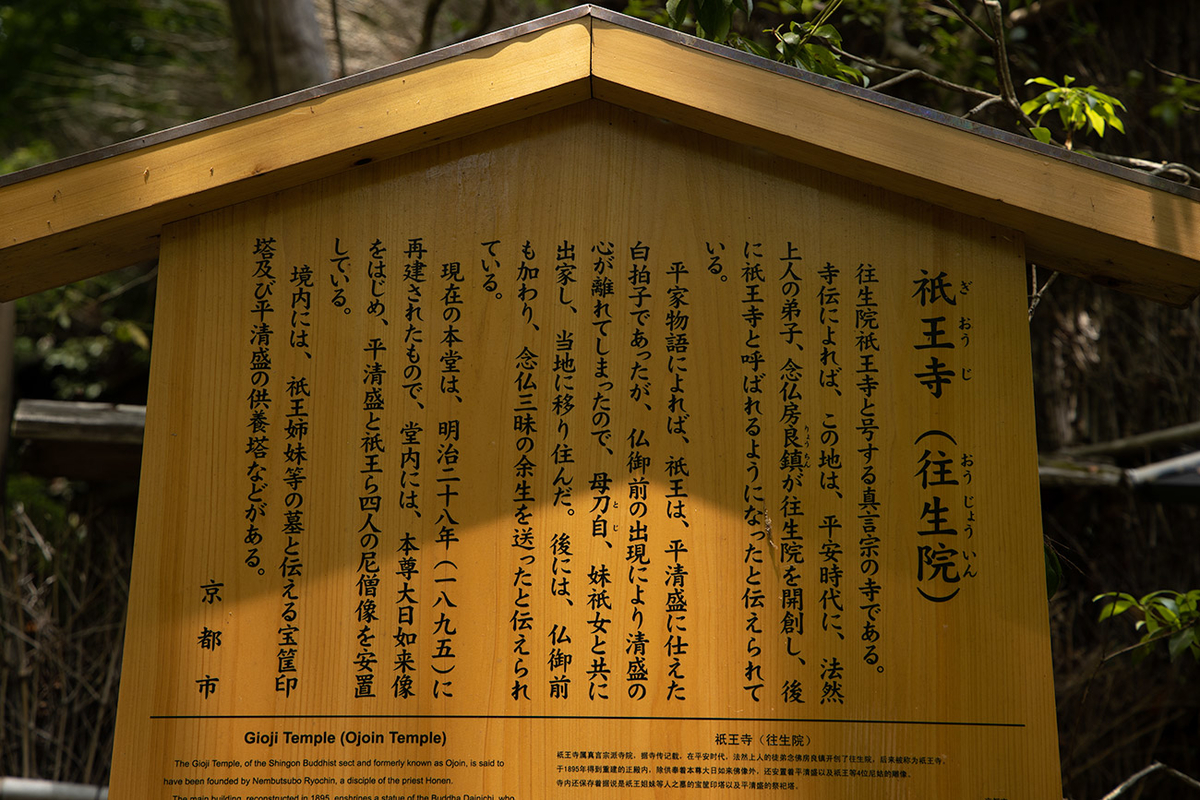 祇王寺（往生院）
ぎおうじ　おうじょういん
往生院祇王寺と号する真言宗の寺である。
寺伝によれば、この地は、平安時代に、法然
上人の弟子、念仏房良鎮が往生院を開創し、後
りょうちん
に祇王寺と呼ばれるようになったと伝えられて
いる。
平家物語によれば、祇王は、平清盛に仕えた
白拍子であったが、仏御前の出現により清盛の
心が離れてしまったので、母刀自、妹祇女と共に
とじ
出家し、当地に移り住んだ。後には、仏御前
も加わり、念仏三昧の余生を送ったと伝えられ
ている。
現在の本堂は、明治二十八年（一八九五）に
再建されたもので、堂内には、本尊大日如来像
をはじめ、平清盛と祇王ら四人の尼僧像を安置
している。
境内には、祇王姉妹等の墓と伝える宝筐印
塔及び平清盛の供養塔などがある。
京都市
Gioji Temple (Ojoin Temple)
The Gioji Temple, of the Shingon Buddhist sect and formerly known as Ojoin, is said to
have been founded by Nembutsubo Ryochin, a disciple of the priest Honen.
The main building, reconstructed in 1895, enshrines a statue of the Buddha Dainichi, who
祇王寺（往生院）
祇王寺属真言宗派寺院，据寺传记载，在平安时代，法然上人的徒弟念佛房良镇开创了往生院，后来被称为祇王寺。
于1895年得到重建的正殿内，除供奉着本尊大日如来佛像外，还安置着平清盛以及祇王等4位尼姑的雕像。
寺内还保存着据说是祇王姐妹等人之墓的宝筐印塔以及平清盛的祭祀塔。